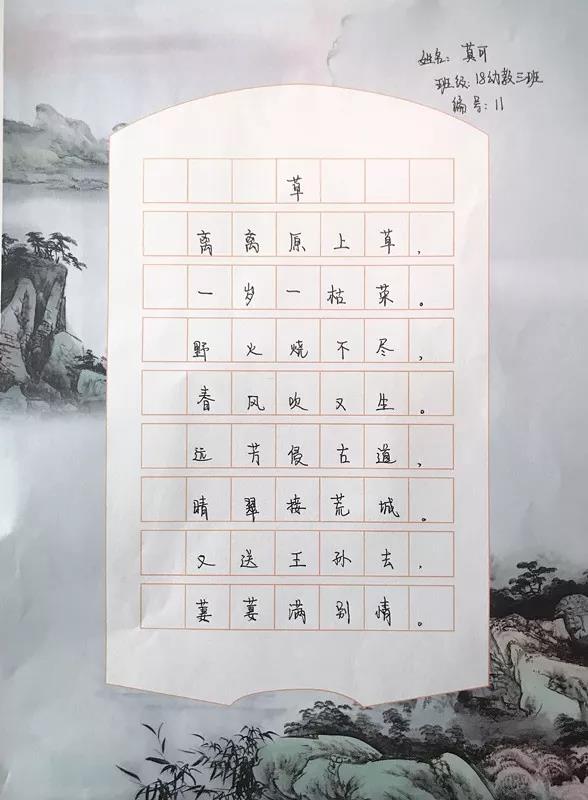 姓名：莫可
班级：18幼教三班
编号：11
草
离离原上草，
一岁一枯荣。
野火烧不尽，
春风吹又生。
远芳侵古道，
晴翠接荒城。
又送王孙去，
萋萋满别情。